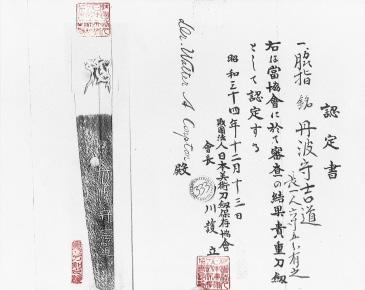 認定書
一、脇指 銘 丹波守吉道
長一尺六寸五分有之
右は當協會に於て審査の結果貴重刀劍
として認定する
昭和三十四年十二月十三日
財團法人日本美術刀劍保存協會
會長 細川護立
Dr. Walter A Compton 殿